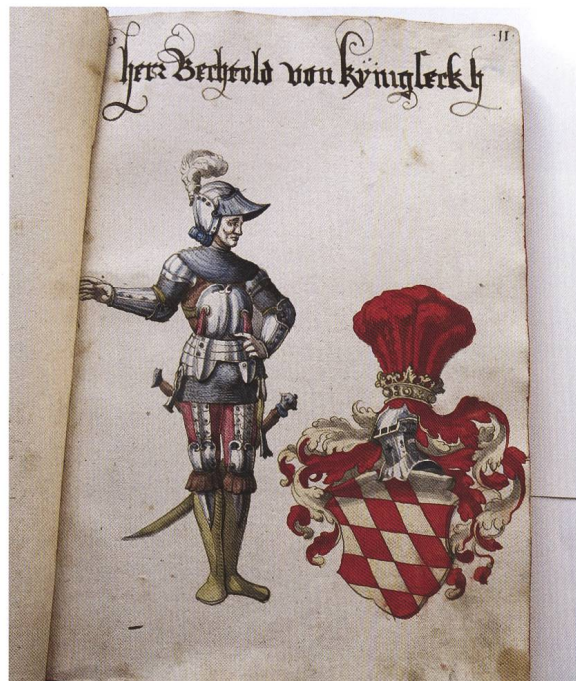 ·11·
herr Bechtold von kÿnigseckh